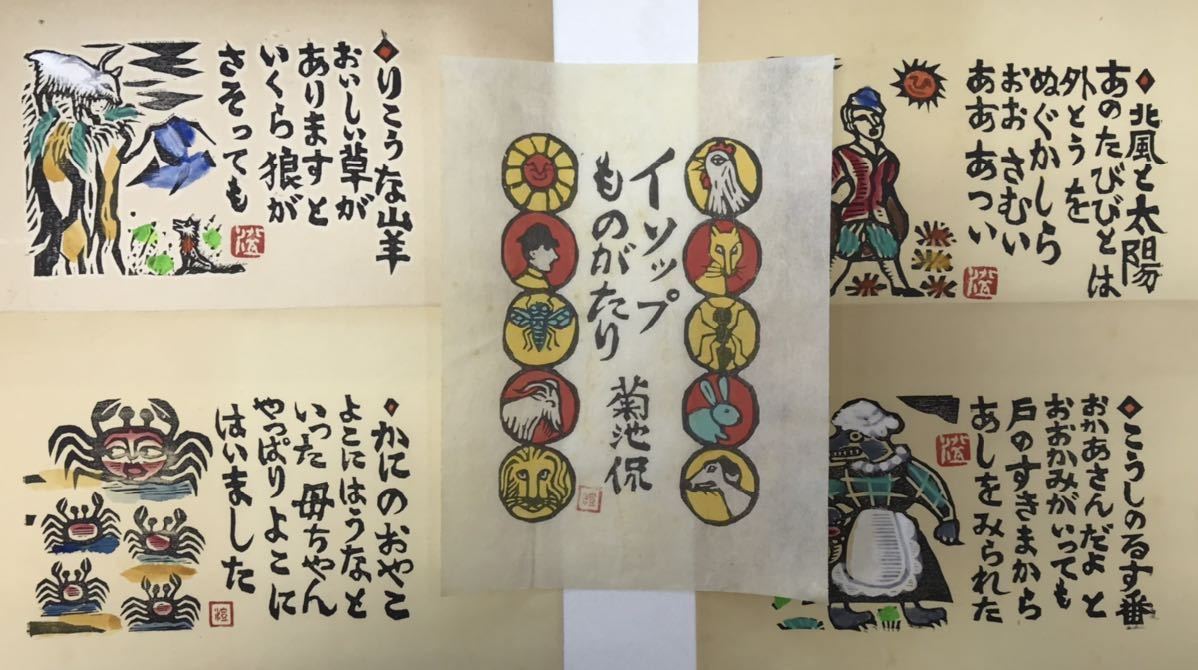 りこうな山羊
おいしい草が
ありますと
いくら狼が
さそっても
イソップ
ものがたり
菊池侃
北風と太陽
あのたびびとは
外とうを
ぬぐかしら
おお さむい
ああ あつい
かにのおやこ
よこにはうなと
いった 母ちゃん
やっぱりよこに
はいました
こうしのるす番
おかあさんだよと
おおかみがいっても
戸のすきまから
あしをみられた